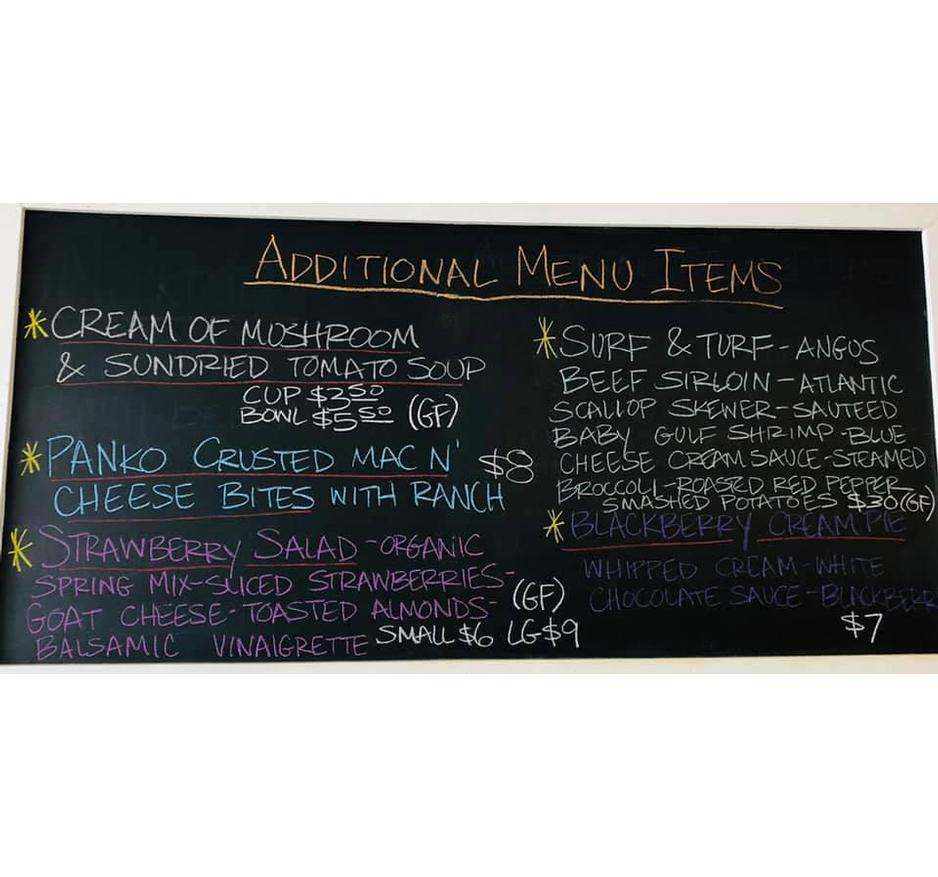 ADDITIONAL MENU ITEMS
*CREAM OF MUSHROOM
& SUNDRIED TOMATO SOUP
CUP $3.50
BOWL $5.50 (GF)
*PANKO CRUSTED MAC N' $8
CHEESE BITES WITH RANCH
*STRAWBERRY SALAD-ORGANIC
SPRING MIX-SLICED STRAWBERRIES-
GOAT CHEESE-TOASTED ALMONDS- (GF)
BALSAMIC VINAIGRETTE SMALL $6 LG $9
*SURF & TURF-ANGUS
BEEF SIRLOIN-ATLANTIC
SCALLOP SKEWER-SAUTEED
BABY GULF SHRIMP-BLUE
CHEESE CREAM SAUCE-STEAMED
BROCCOLI-ROASTED RED PEPPER
SMASHED POTATOES $30 (GF)
*BLACKBERRY CREAM PIE
WHIPPED CREAM-WHITE
CHOCOLATE SAUCE-BLACKBERR
$7